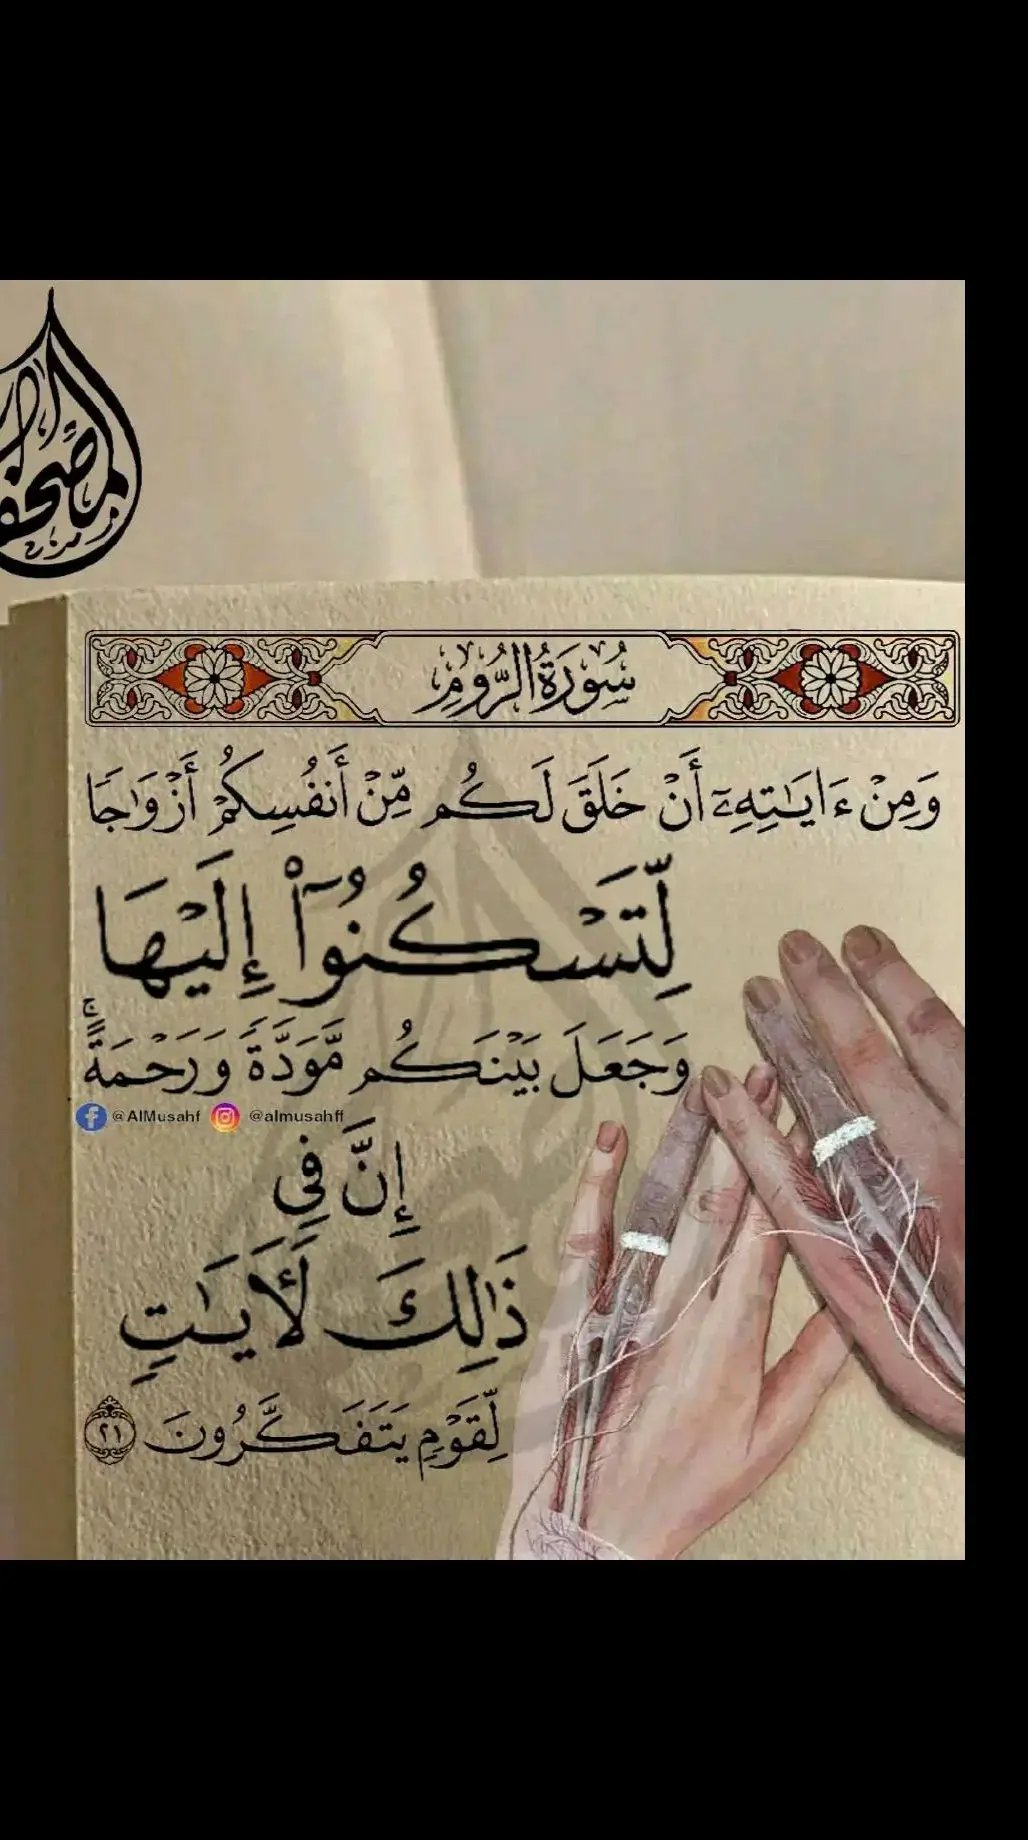 المصحف
سُورَةُ الرُّومِ
وَمِنْ ءَايَـٰتِهِۦٓ أَنْ خَلَقَ لَكُم مِّنْ أَنفُسِكُمْ أَزْوَٰجًا
لِّتَسْكُنُوٓا۟ إِلَيْهَا
وَجَعَلَ بَيْنَكُم مَّوَدَّةً وَرَحْمَةً ۚ
@AlMusahf @almusahff
إِنَّ فِى
ذَٰلِكَ لَـَٔايَـٰتٍ
لِّقَوْمٍ يَتَفَكَّرُونَ ٢١